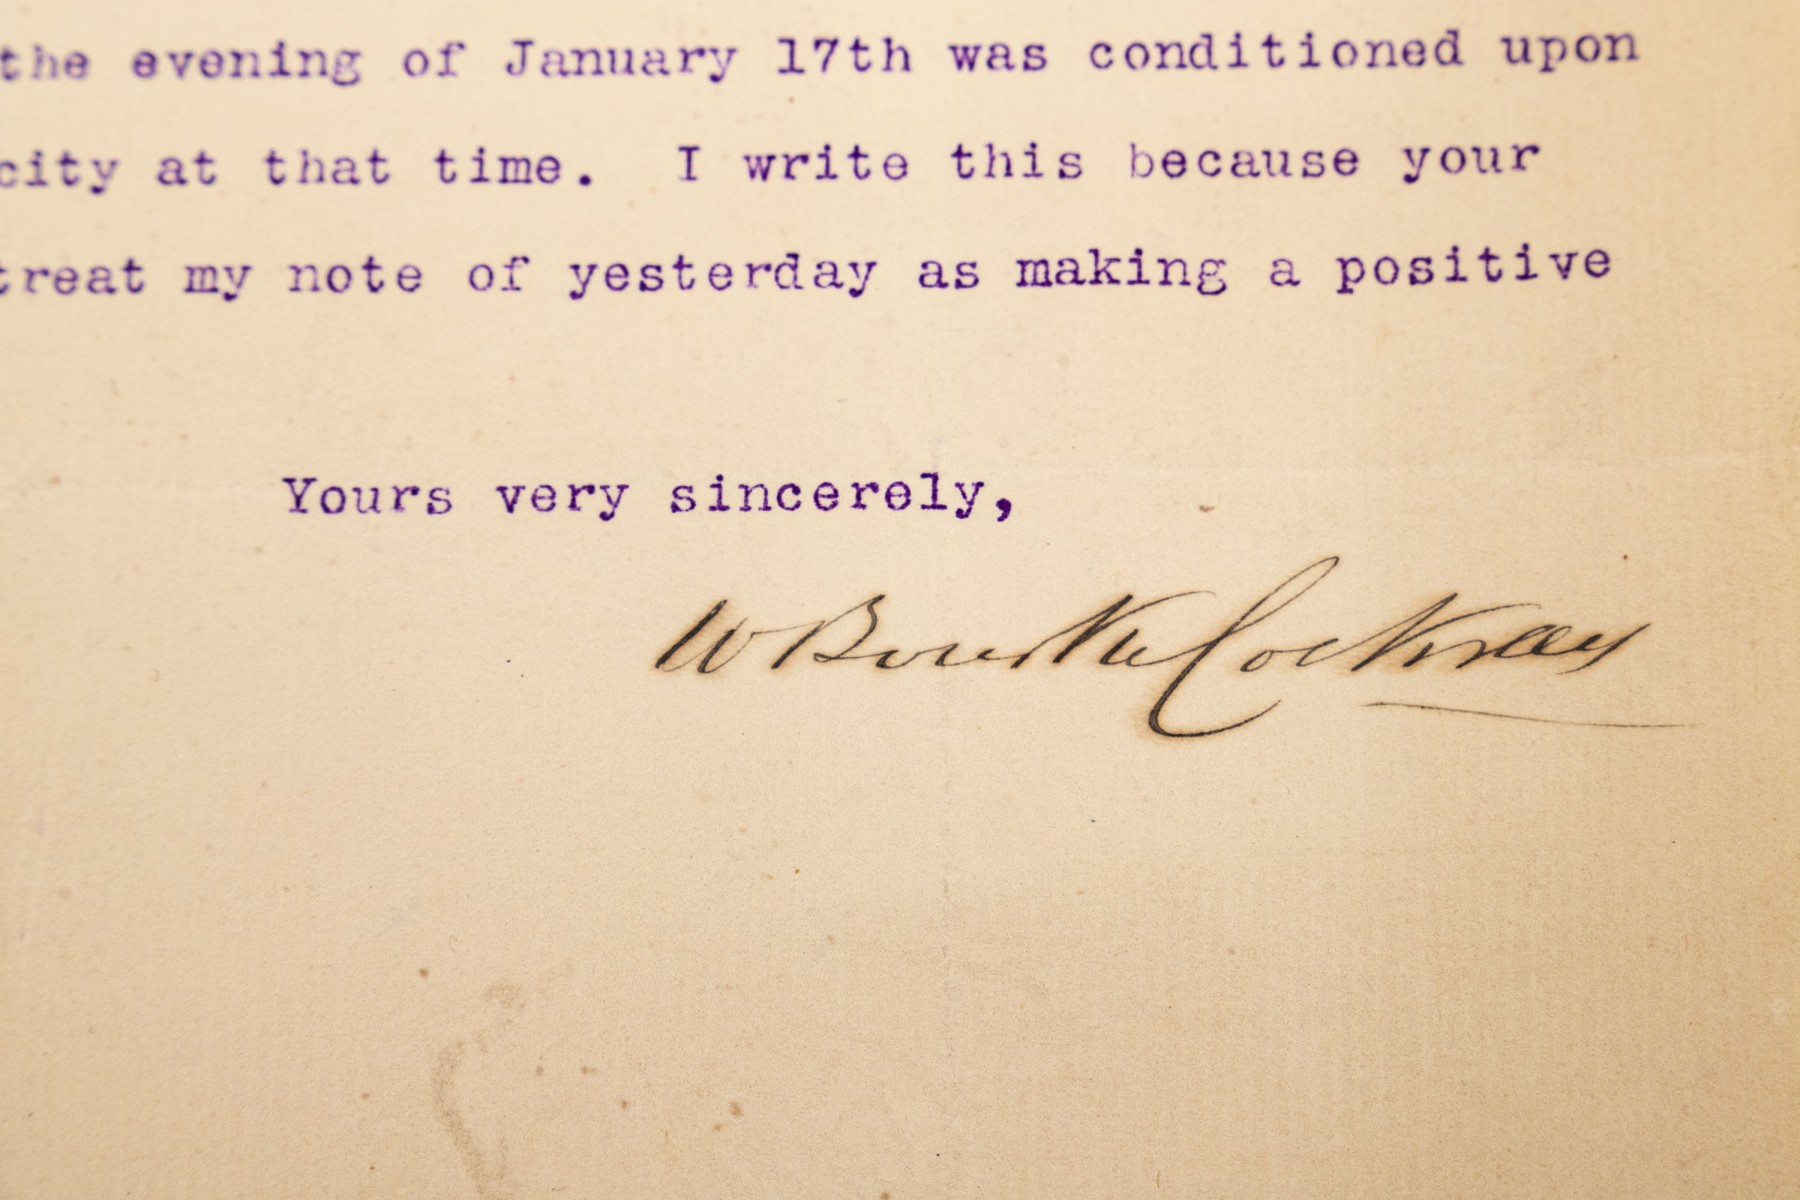 the evening of January 17th was conditioned upon
city at that time. I write this because your
treat my note of yesterday as making a positive
Yours very sincerely,
W Bourke Cockran